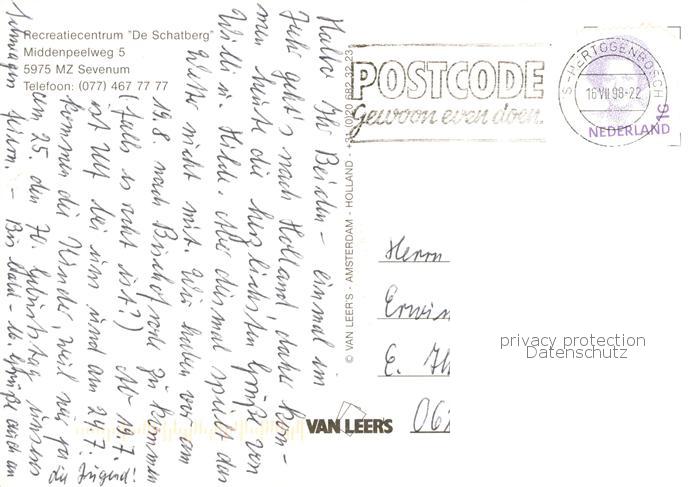 Recreatiecentrum "De Schatberg"
Middenpeelweg 5
5975 MZ Sevenum
Telefoon: (077) 467 77 77
Hallo Ihr Beiden – einmal im
Jahr geht's nach Holland, daher kom-
men heute die herzlichsten Grüße von
Willi u. Hilde. Aber diesmal spielt das
Wetter nicht mit. Wir haben vor am
19.8. nach Bischofsrode zu kommen
(falls es recht ist?) Ab 19.7.
ist Ulf bei uns und am 24.7.
kommen die Kinder, weil wir ja
am 25. den 70. Geburtstag unseres
feiern. – Bis bald – Grüße auch an
die Jugend!
© VAN LEER'S - AMSTERDAM - HOLLAND - +31 (0)20 682 32 23
POSTCODE
Gewoon even doen.
'S-HERTOGENBOSCH
16 VII 98-22
NEDERLAND
Herrn
Erwin
E. Th
privacy protection
Datenschutz
VAN LEER'S